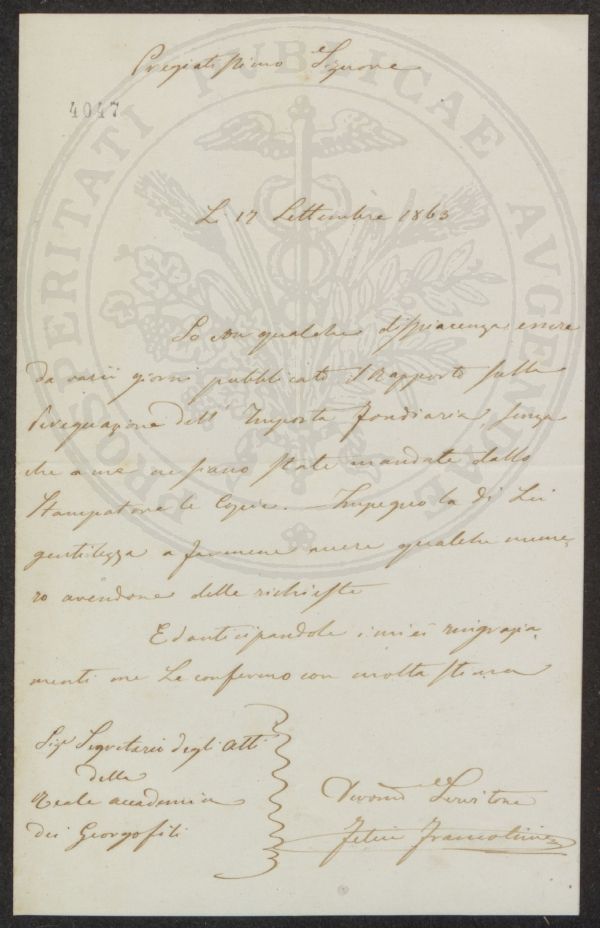 Pregiatissimo Signore
4047
L. 17 Settembre 1863
So con qualche dispiacenza essere
da varii giorni pubblicato il Rapporto sulla
Perequazione dell' Imposta fondiaria, senza
che a me ne siano state mandate dallo
Stampatore le Copie. — Impegno la di Lei
gentilezza a farmene avere qualche nume,
ro avendone delle richieste
Ed anticipandole i miei ringrazia,
menti me Le confermo con molta stima
Sigr Segretario degli Atti
della
Reale accademia
dei Georgofili
Devomo Servitore
Felice Francolini
PROSPERITATI PUBLICAE AUGENDAE